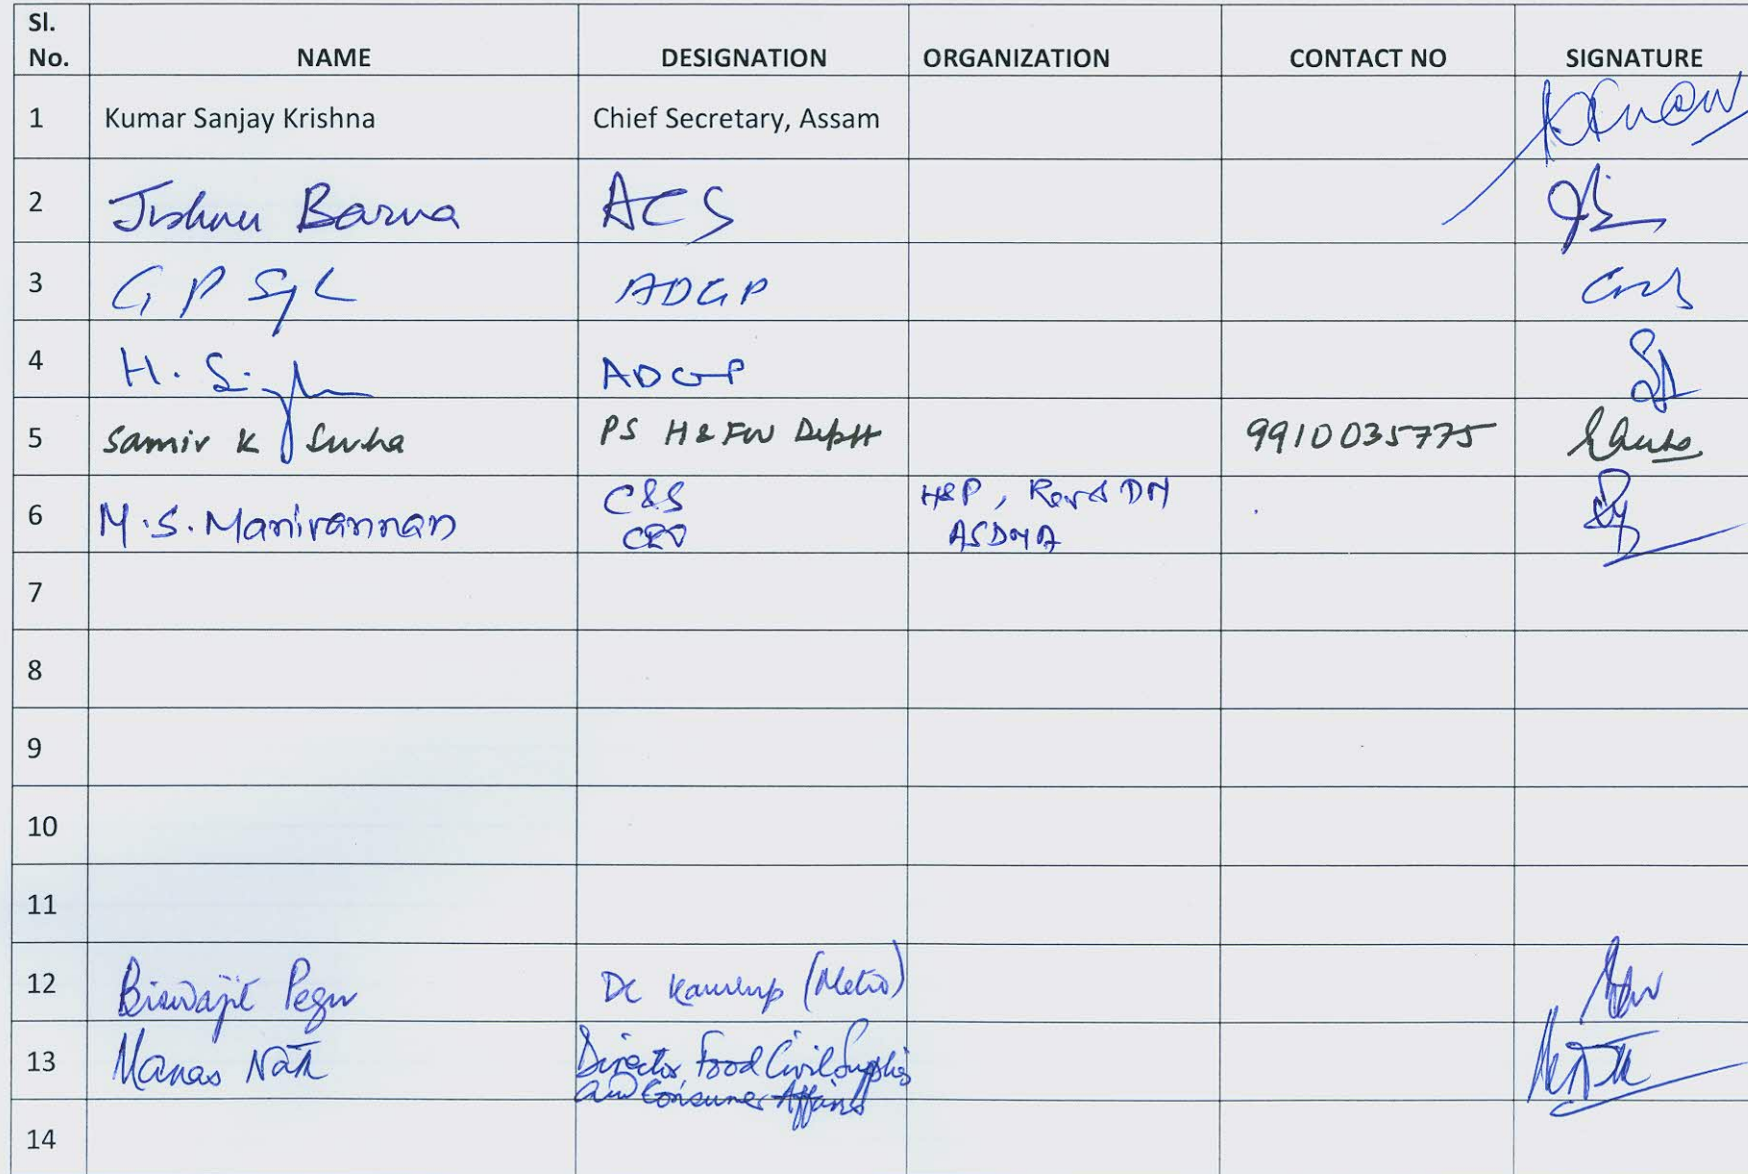 Sl.
No. NAME DESIGNATION ORGANIZATION CONTACT NO SIGNATURE
1 Kumar Sanjay Krishna Chief Secretary, Assam
2 Jishnu Barua ACS
3 G P ADGP
4 H. Singh ADGP
5 Samir K Sinha PS H&FW Deptt 9910035775
6 M.S. Manivannan C&S H&P, Rev & DM
CEO ASDMA
7
8
9
10
11
12 Biswajit Pegu DC Kamrup (Metro)
13 Manas Nath Director, Food Civil Supplies
and Consumer Affairs
14